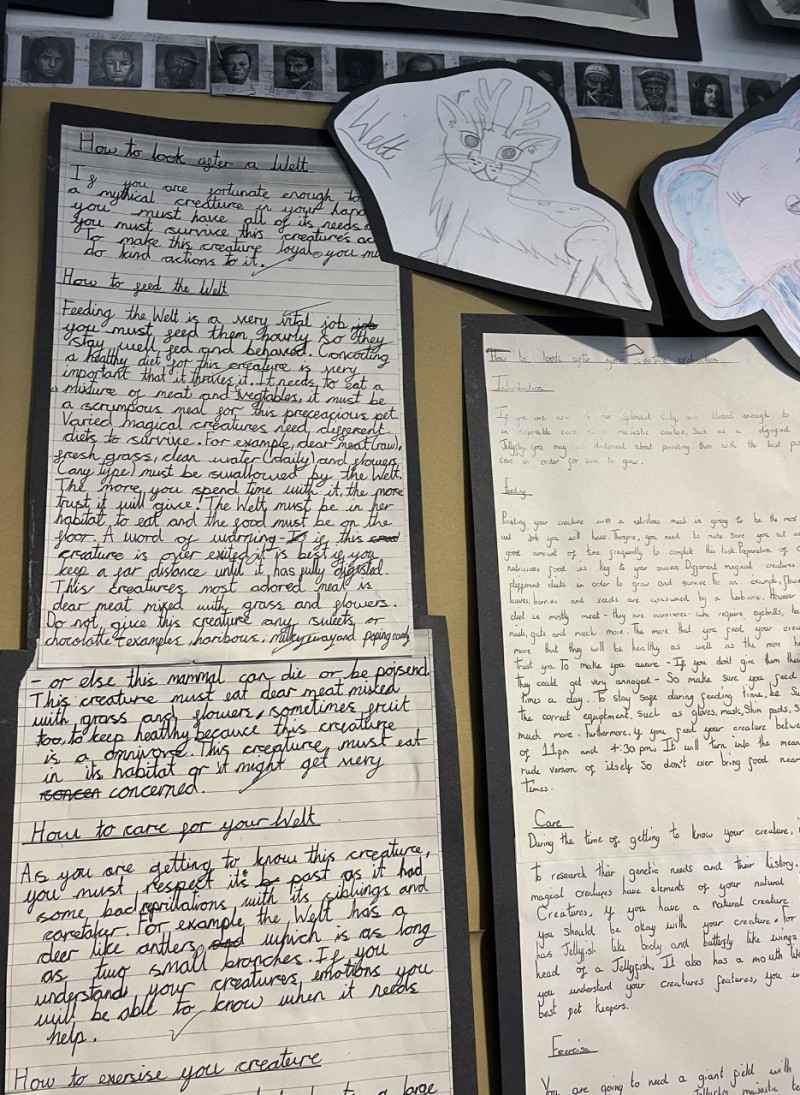 How to look after a Welt
If you are fortunate enough to
a mythical creature in your
you must have all of its needs
you must survive this creature's
To make this creature loyal you
do kind actions to it.
How to feed the Welt
Feeding the Welt is a very vital job job
you must feed them hourly so they
stay well fed and behaved. Concocting
a healthy diet for this creature is very
important that it thrives it. It needs to eat a
mixture of meat and vegtables, it must be
a scrumpous meal for this preceacious pet.
Varied magical creatures need different
diets to survive. For example, dear meat (raw),
fresh grass, clean water (daily) and flowers
(any type) must be swallowed by the Welt.
The more you spend time with it, the more
trust it will give! The Welt must be in her
habitat, to eat and the food must be on the
floor. A word of warning - if this
creature is over exited it is best if you
keep a far distance until it has fully digested.
This creatures most adored meal is
dear meat mixed with grass and flowers.
Do not give this creature any sweets or
chocolatte examples, haribous, milkyway and poping candy
- or else this mammal can die or be poisend.
This creature must eat dear meat mixed
with grass and flowers, sometimes fruit
too, to keep healthy because this creature
is a omnivore. This creature must eat
in its habitat or it might get very
concerned.
How to care for your Welt
As you are getting to know this creature,
you must respect it's past as it had
some bad with its siblings and
caretaker. For example the Welt has a
deer like antlers and which is as long
as two small branches. If you
understand your creatures emotions you
will be able to know when it needs
help.
How to exersise you creature
large
Welt
How to look after your creature
Introduction
If you are new to our splendid city and blessed enough to
in care a majestic creature, such as a dignified
Jellyfly you may about providing them with the best
care in order for them to grow.
Feeding
Providing your creature with a nutritious meal is going to be the most
job you will have. Therefore, you need to make sure you set
good amount of time frequently to complete this task. Preparation of
nutricious food is key to your success. Different magical creatures
different diets in order to grow and survive. For an example,
leaves, berries and seeds are consumed by a herbivore. However
diet is mostly meat - they are carnivores who require eyeballs,
nails, guts and much more. The more that you feed your
more that they will be healthy as well as the more
trust you. To make you aware - If you don't give them
they could get very annoyed - So make sure you feed
times a day. To stay safe during feeding time, be
The correct equiptment. Such as gloves, mask, Shin pads,
much more. Furthermore, if you feed your creature
of 11pm and 4:30 pm, It will turn into the
rude version of itself So don't ever bring food near
times.
Care
During the time of getting to know your creature,
to research their genetic needs and their history.
magical creatures have elements of your natural
Creatures, if you have a natural creature
you should be okay with your creature. For
has Jellyfish like body and butterfly like wings
head of a Jellyfish. It also has a mouth
you understand your creatures features, you
best pet keepers.
Exercise
You are going to need a giant field with
majestic